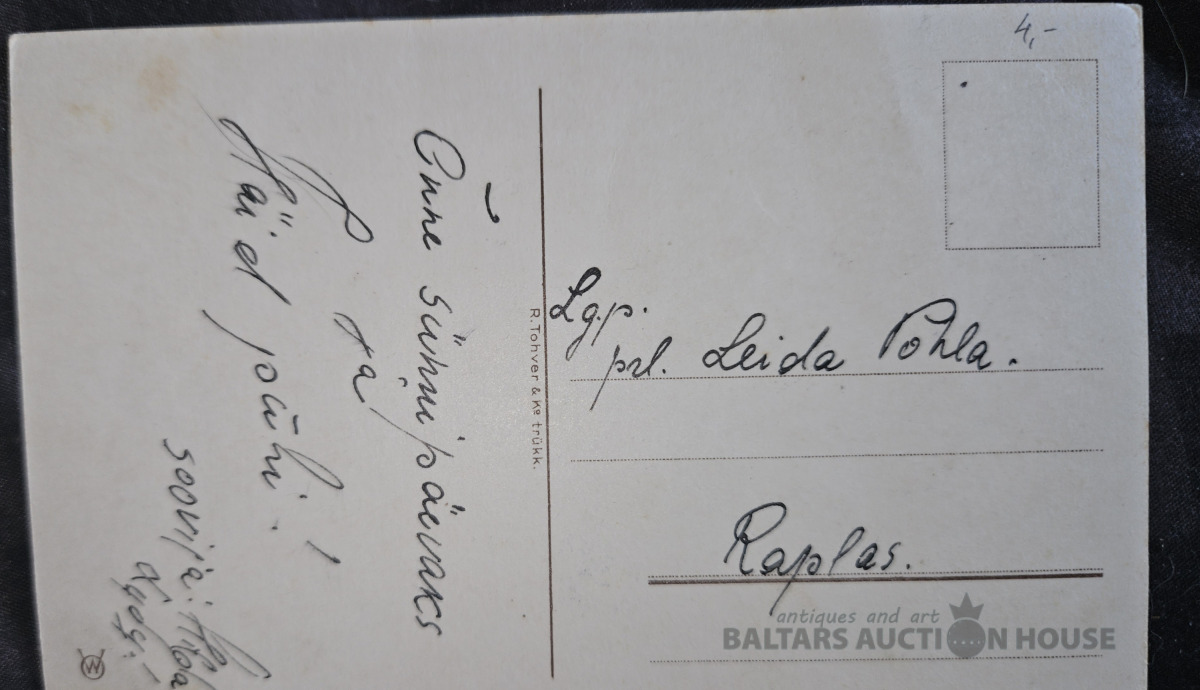 4,-
Õnne sünnipäevaks
ja
Häid pühi!
soovija:
R. Tohver & Ko trükk.
Lgp.
prl. Leida Pohla.
Raplas.
antiques and art
BALTARS AUCTION HOUSE